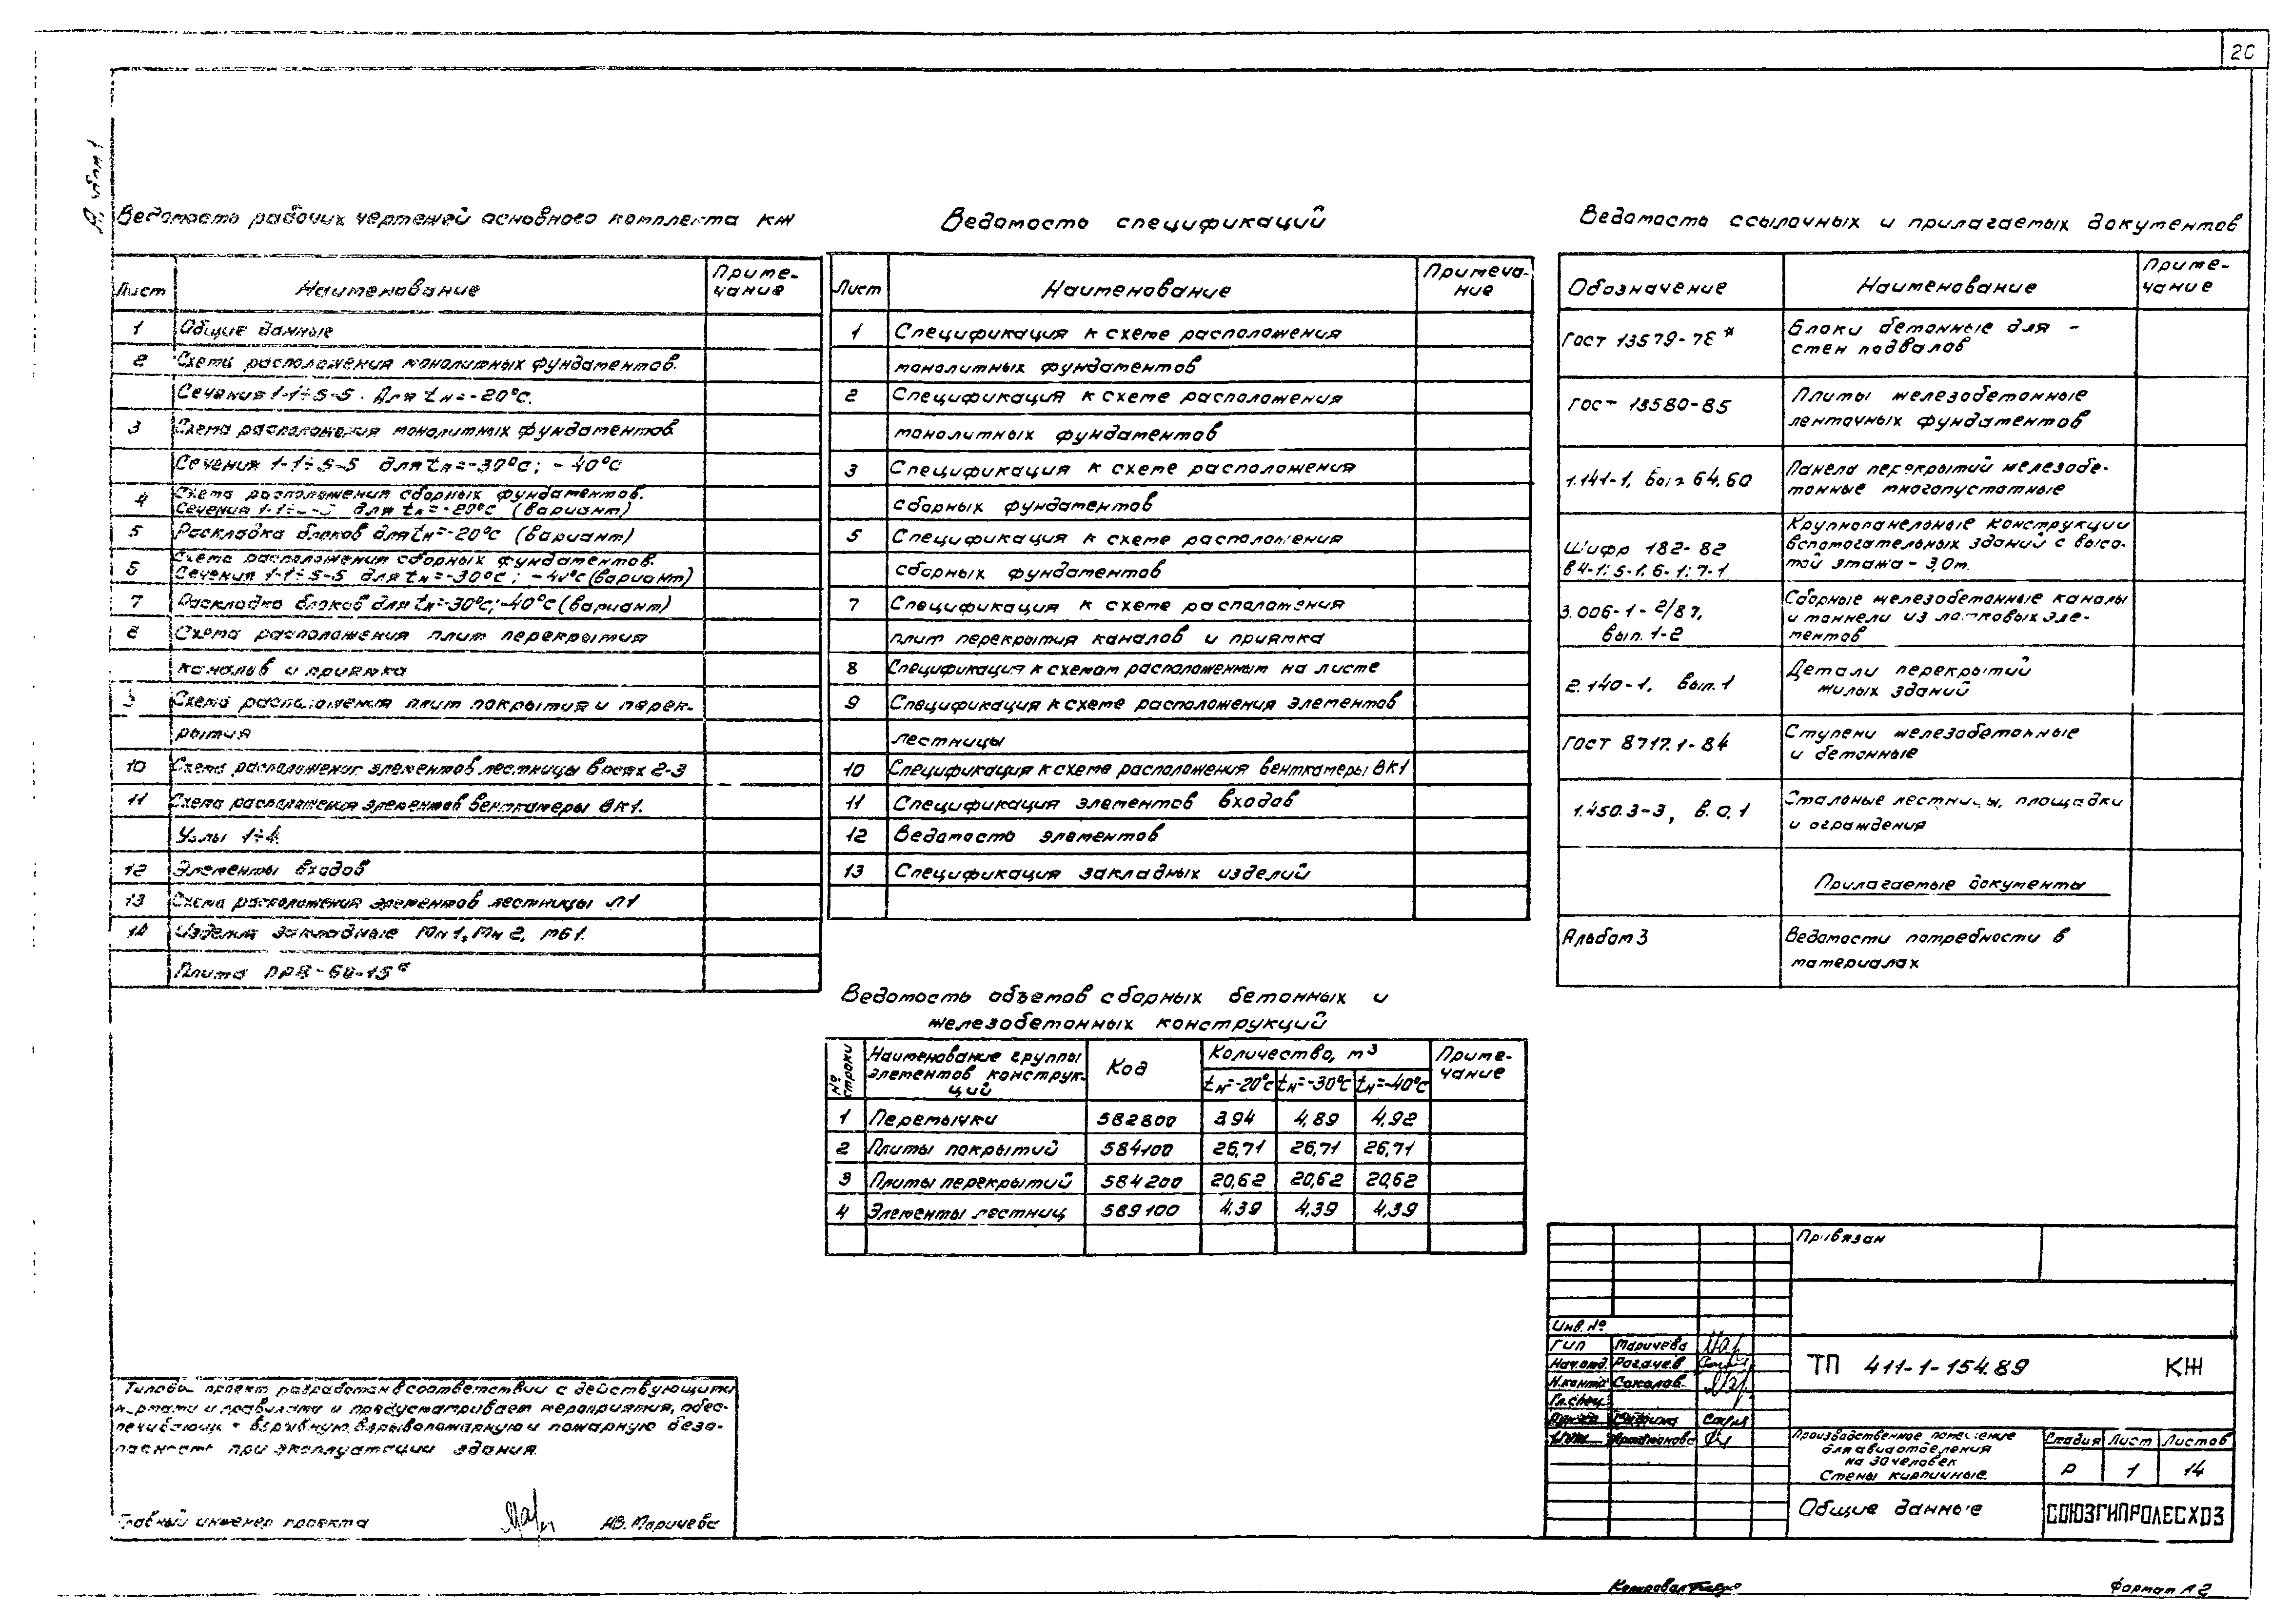 20
Альбом 1
Ведомость рабочих чертежей основного комплекта КЖ
Лист Наименование Приме-
чание
1 Общие данные
2 Схема расположения монолитных фундаментов.
Сечения 1-1÷5-5. Для tн=-20°С.
3 Схема расположения монолитных фундаментов
Сечения 1-1÷5-5 для tн=-30°С; -40°С
4 Схема расположения сборных фундаментов.
Сечения 1-1÷5-5 для tн=-20°С (вариант)
5 Раскладка блоков для tн=-20°С (вариант)
6 Схема расположения сборных фундаментов.
Сечения 1-1÷5-5 для tн=-30°С; -40°С (вариант)
7 Раскладка блоков для tн=-30°С;-40°С (вариант)
8 Схема расположения плит перекрытия
каналов и приямка
9 Схема расположения плит покрытия и перек-
рытия
10 Схема расположения элементов лестницы в осях 2-3
11 Схема расположения элементов венткамеры ВК1.
Узлы 1÷4.
12 Элементы входов
13 Схема расположения элементов лестницы Л1
14 Изделия закладные МН1, МН2, МБ1.
Плита ПРВ-60-15а
Ведомость спецификаций
Лист Наименование Примеча-
ние
1 Спецификация к схеме расположения
монолитных фундаментов
2 Спецификация к схеме расположения
монолитных фундаментов
3 Спецификация к схеме расположения
сборных фундаментов
5 Спецификация к схеме расположения
сборных фундаментов
7 Спецификация к схеме расположения
плит перекрытия каналов и приямка
8 Спецификация к схемам расположенным на листе
9 Спецификация к схеме расположения элементов
лестницы
10 Спецификация к схеме расположения венткамеры ВК1
11 Спецификация элементов входов
12 Ведомость элементов
13 Спецификация закладных изделий
Ведомость ссылочных и прилагаемых документов
Обозначение Наименование Приме-
чание
ГОСТ 13579-78* Блоки бетонные для -
стен подвалов
ГОСТ 13580-85 Плиты железобетонные
ленточных фундаментов
1.141-1, вып 64,60 Панели перекрытий железобе-
тонные многопустотные
Шифр 182-82
в 4-1; 5-1; 6-1; 7-1
Крупнопанельные конструкции
вспомогательных зданий с высо-
той этажа - 3,0м.
3.006-1-2/87,
вып. 1-2
Сборные железобетонные каналы
и тоннели из лотковых эле-
ментов
2.140-1, вып.1 Детали перекрытий
жилых зданий
ГОСТ 8717.1-84 Ступени железобетонные
и бетонные
1.450.3-3, в.0,1 Стальные лестницы, площадки
и ограждения
Прилагаемые документы
Альбом 3 Ведомости потребности в
материалах
Ведомость объемов сборных бетонных и
железобетонных конструкций
№ строки Наименование группы
элементов конструк-
ций
Код Количество, м³ Приме-
чание
tн=-20°С tн=-30°С tн=-40°С
1 Перемычки 582800 3,94 4,89 4,92
2 Плиты покрытий 584100 26,71 26,71 26,71
3 Плиты перекрытий 584200 20,62 20,62 20,62
4 Элементы лестниц 589100 4,39 4,39 4,39
Типовой проект разработан в соответствии с действующими
нормами и правилами и предусматривает мероприятия, обес-
печивающие взрывную, взрывопожарную и пожарную безо-
пасность при эксплуатации здания.
Главный инженер проекта А.В. Маричева
Привязан
Инв. №
ГИП Маричева
Нач.отд. Рогачев
Н.контр. Соколов
Гл.спец.
ТП 411-1-154.89 КЖ
Производственное помещение
для авиаотделения
на 30 человек
Стены кирпичные
Стадия Лист Листов
Р 1 14
Общие данные
СОЮЗГИПРОЛЕСХОЗ
Копировал
Формат А2